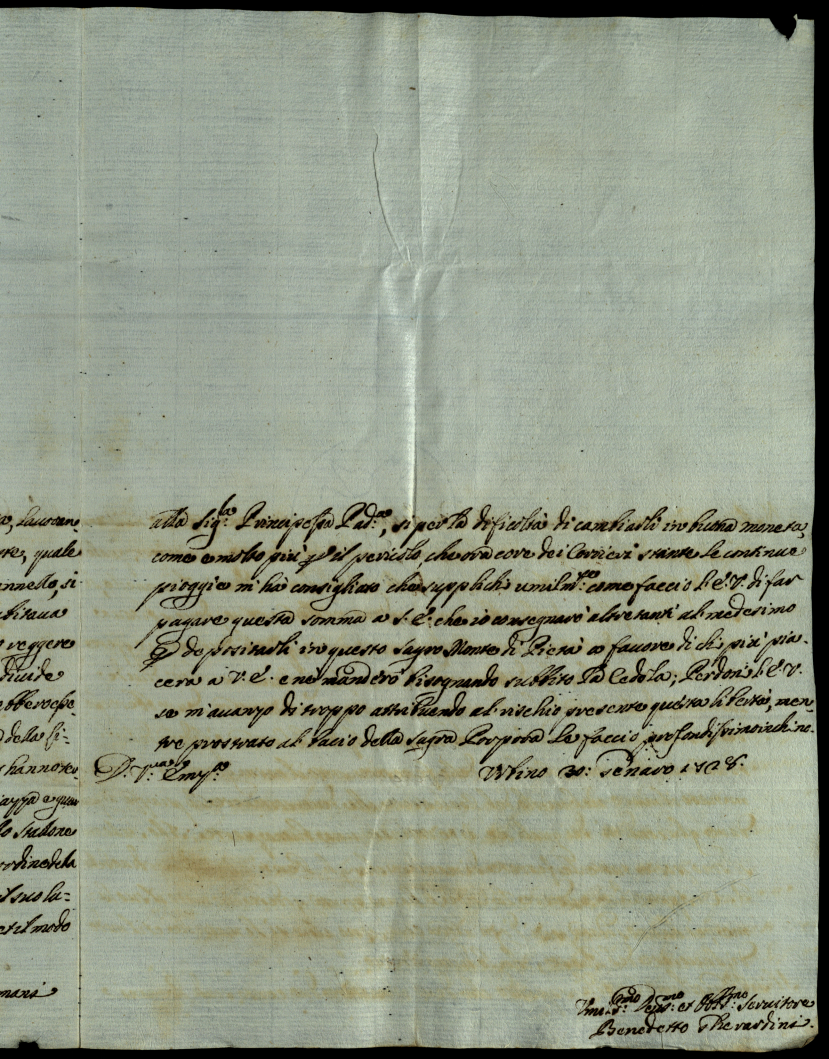 a, Laocoon
te, quale
annello, si
bitava
veggere
divide
ebbero esse
della Ci-
hanno res
iazza e quan
lo stallone
ordine dela
il suo la-
et il modo
mani
alla Sig.ra Principessa Pad.na, si per la dificoltà di cambiarli in buona moneta,
come e molto più p il pericolo, che ora core dei Corrieri stante le continue
pioggie m'hà consigliato che supplichi umilm.te come faccio l'E. V. di far
pagare questa somma a S. E. che io consegnarò altretanti al medesimo
p depositarli in questo Sagro Monte di Pietà a favore di chi più pia-
cerà a V. E. e ne manderò bisognando subbito la Cedola; Perdoni l'E. V.
se m'avanzo di troppo attribuendo al rischio presente questa libertà, men-
tre prostrato al bacio della Sagra Porpora Le faccio profondissimo inchino.
D. V.ra Em.za Urbino 30: Genaro 1728.
Umi.mo Dev.mo et Obb.mo Servitore
Benedetto Gherardini